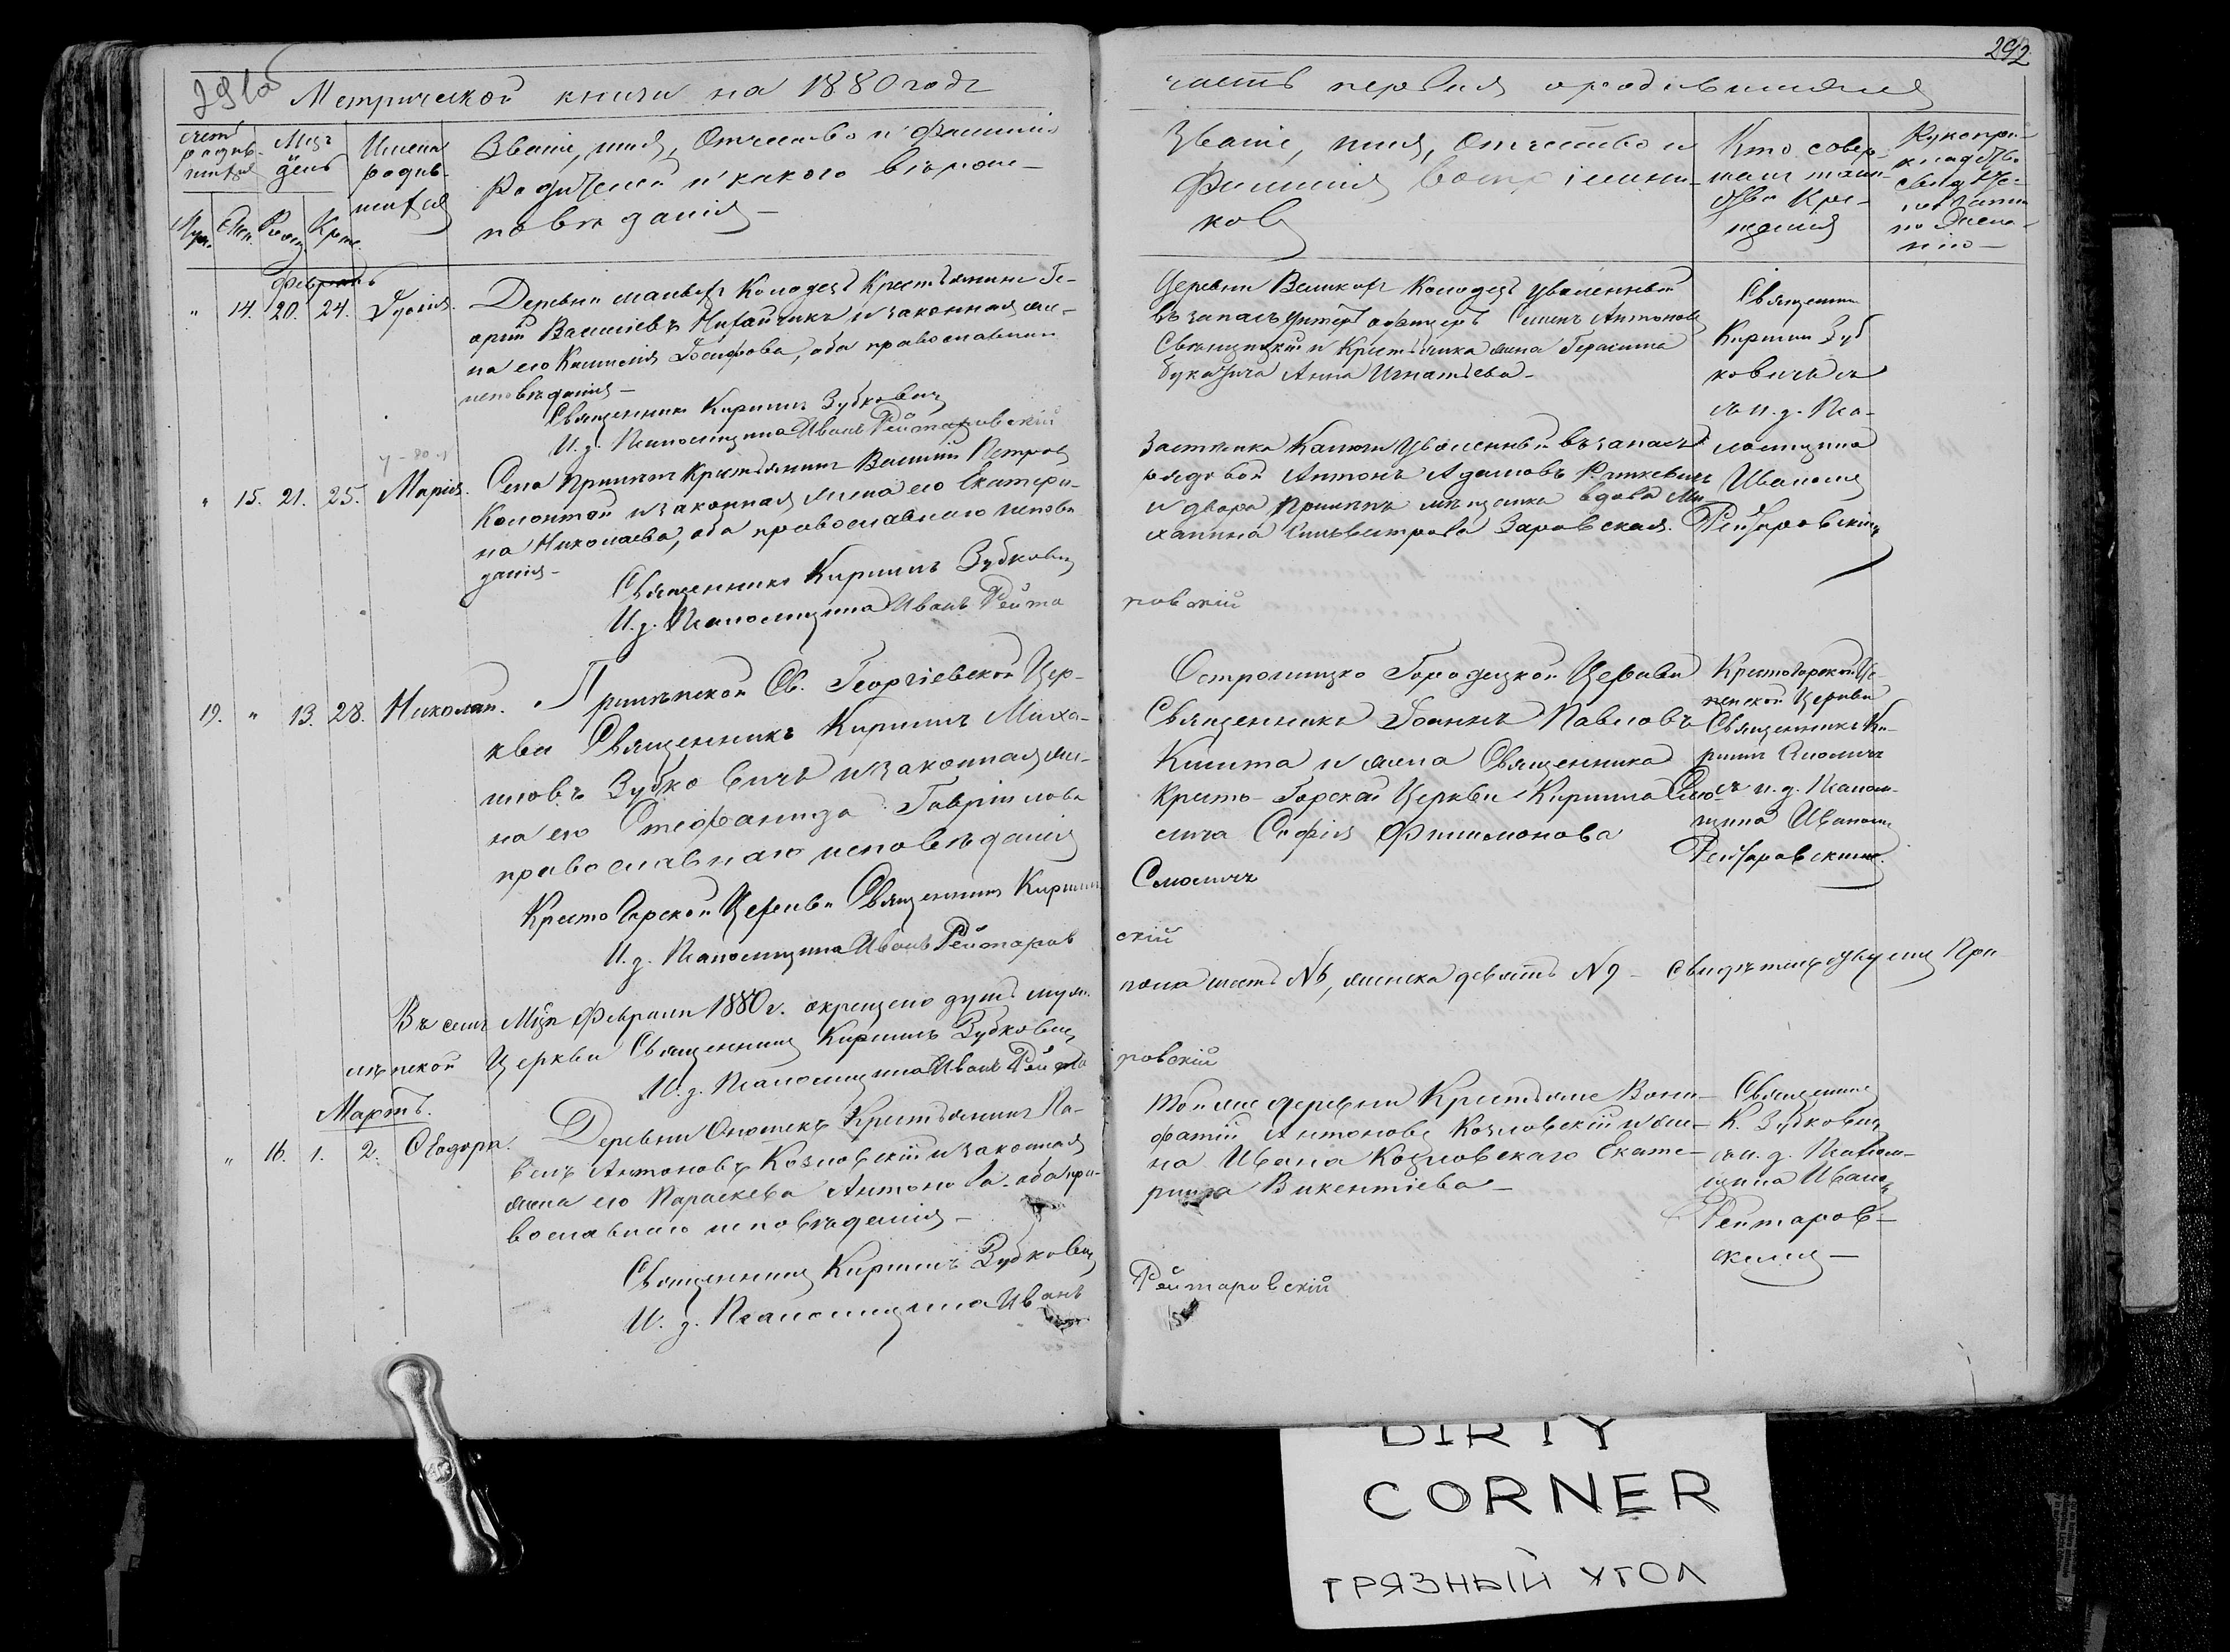 291об
Метрической книги на 1880 годъ
счетъ родив-шихся
Мцъ день
Имена родив-шихся
Званіе, имя, Отчество и Фамилія
Родителей и какого вѣроис-
повѣданія —
Муж. Жен. Рожд. Крещ.
Февраль
" 14. 20. 24.
Деревни малыхъ Колодезь Крестьянинъ Ге-
оргій Васильевъ и законная же-
на его Іосифова, оба православнаго
исповѣданія —
Священникъ Кириллъ Зубковичъ
И. д. Псаломщика Иванъ Рейтаровскій
" 15. 21. 25. Марія.
Села Прилѣпъ Крестьянинъ Василій Петровъ
Колонтай и законная жена его Екатери-
на Николаева, оба православнаго исповѣ
данія —
Священникъ Кириллъ Зубковичъ
И. д. Псаломщика Иванъ Рейта
19. " 13. 28. Николай.
Прилѣпской Св. Георгіевской Цер-
кви Священникъ Кириллъ Миха-
иловъ Зубковичъ и законная же-
на его Стефанида Гавріилова
православнаго исповѣданія
Кресто Горской Церкви Священникъ Кириллъ
И. д. Псаломщика Иванъ Рейтаров
Въ семъ Мцѣ Февралѣ 1880 г. окрещено душъ муж.
лѣпской Церкви Священникъ Кириллъ Зубковичъ
И. д. Псаломщика Иванъ Рейта
Мартъ.
" 16. 1. 2. Ѳеодора.
Деревни Крестьянинъ Па-
велъ Антоновъ Козловскій и законная
жена его Параскева Антонова оба пра-
вославнаго исповѣданія —
Священникъ Кириллъ Зубковичъ
И. д. Псаломщика Иванъ
292
часть первая о родившихся
Званіе, имя, Отчество и
Фамилія воспріемни-
ковъ
Кто совер-
шалъ таин-
ство Кре-
щенія
Рукопри-
кладство
свидѣте-
лей записи
по желанію —
Деревни Великихъ Колодезь уволенный
въ запасъ Унтеръ офицеръ Антоновъ
и Крестьянка жена Герасима
Анна Игнатьева —
Священникъ
Кириллъ Зуб
ковичъ
съ и. д. Пса-
ломщика
Иваномъ
Рейтаровскимъ
Застѣнка уволенный въ запасъ
рядовой Антонъ Адамовъ
и двора Прилѣпъ мѣщанка вдова Ми
хайлина Сильвестрова Заровская.
ровскій
Острошицко Городецкой Церкви
Священникъ Іоаннъ Павловъ
и жена Священника
Кресто-Горской Церкви Кирилла Смо
лича Софія Филимонова
Кресто Горской Ус
пенской Церкви
Священникъ Ки-
риллъ Смоличъ
съ и. д. Псалом-
щика Иваномъ
Рейтаровскимъ.
Смоличъ
скій
пола шесть №6, женска девять №9 — Свидѣтельствуемъ При
ровскій
Той же деревни Крестьяне Вони-
фатій Антоновъ Козловскій и же-
на Ивана Козловскаго Екате-
рина Викентіева —
Священникъ
К. Зубковичъ
съ и. д. Псалом-
щика Иваномъ
Рейтаров-
скимъ —
Рейтаровскій
DIRTY
CORNER
ГРЯЗНЫЙ УГОЛ